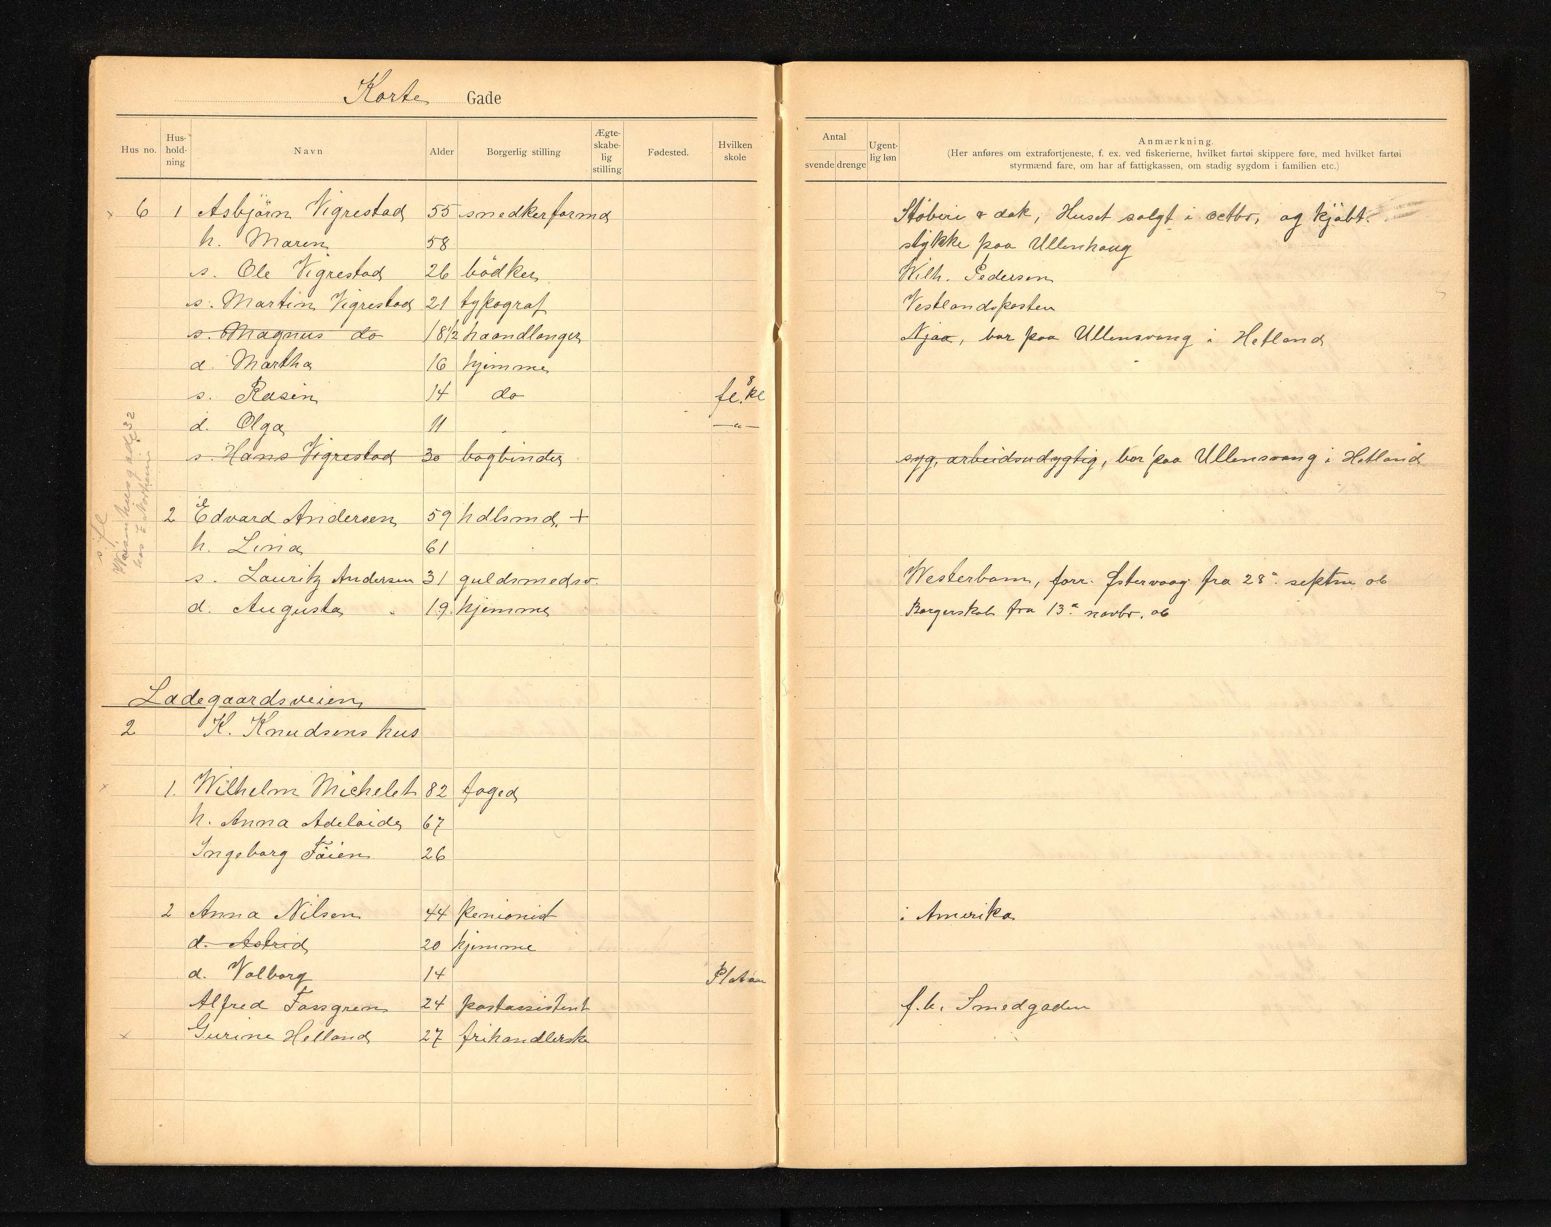 Korte Gade
Hus no. Hus-hold-ning Navn Alder Borgerlig stilling Ægte-skabe-lig stilling Fødested. Hvilken skole Antal svende drenge Ugent-lig løn Anmærkning.
(Her anføres om extrafortjeneste, f. ex. ved fiskerierne, hvilket fartøi skippere føre, med hvilket fartøi
styrmænd fare, om har af fattigkassen, om stadig sygdom i familien etc.)
x 6 1 Asbjörn Vigrestad 55 snedkerformd Støberi & dok, Huset solgt i octbr, og kjøbt
h. Maren 58 stykke paa Ullenhaug
s. Ole Vigrestad 26 bödker Wilh. Pedersen
s. Martin Vigrestad 21 typograf Vestlandsposten
s. Magnus do 18 1/2 haandlanger Njaa, bor paa Ullensvang i Hetland
d. Martha 16 hjemme
s. Rasin 14 do fl. 8 kl
d. Olga 11 —"—
s. Hans Vigrestad 30 bogbinder syg, arbeidsudygtig, bor paa Ullensvang i Hetland
2 Edvard Andersen 59 hdlsmd. +
h. Lina 61
s. Lauritz Andersen 31 guldsmedsv. Westerbom, forr. Østervaag fra 28. septm 06
d. Augusta " 19. hjemme Borgerskab fra 13. novbr. 06
Ladegaardsveien
2 K. Knudsens hus
x 1. Wilhelm Michelet 82 foged
h. Anna Adelaide 67
Ingeborg Föien 26
2 Anna Nilsen 44 penionist i Amerika
d. Astrid 20 hjemme
d. Valborg 14
Alfred Forsgren 24 postassistent f. b. Smedgaden
x Gurine Helland 27 frihandlerske